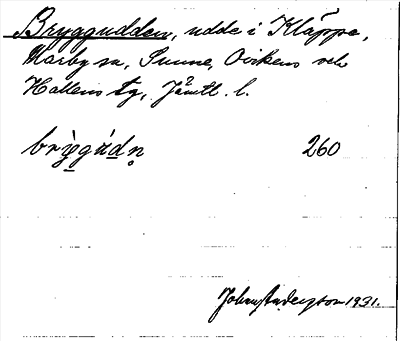 Bryggudden, udde i Kläppe,
Marby sn, Sunne, Ovikens och
Hallens tg, Jämtl. l.
260
John Anderzson 1931.